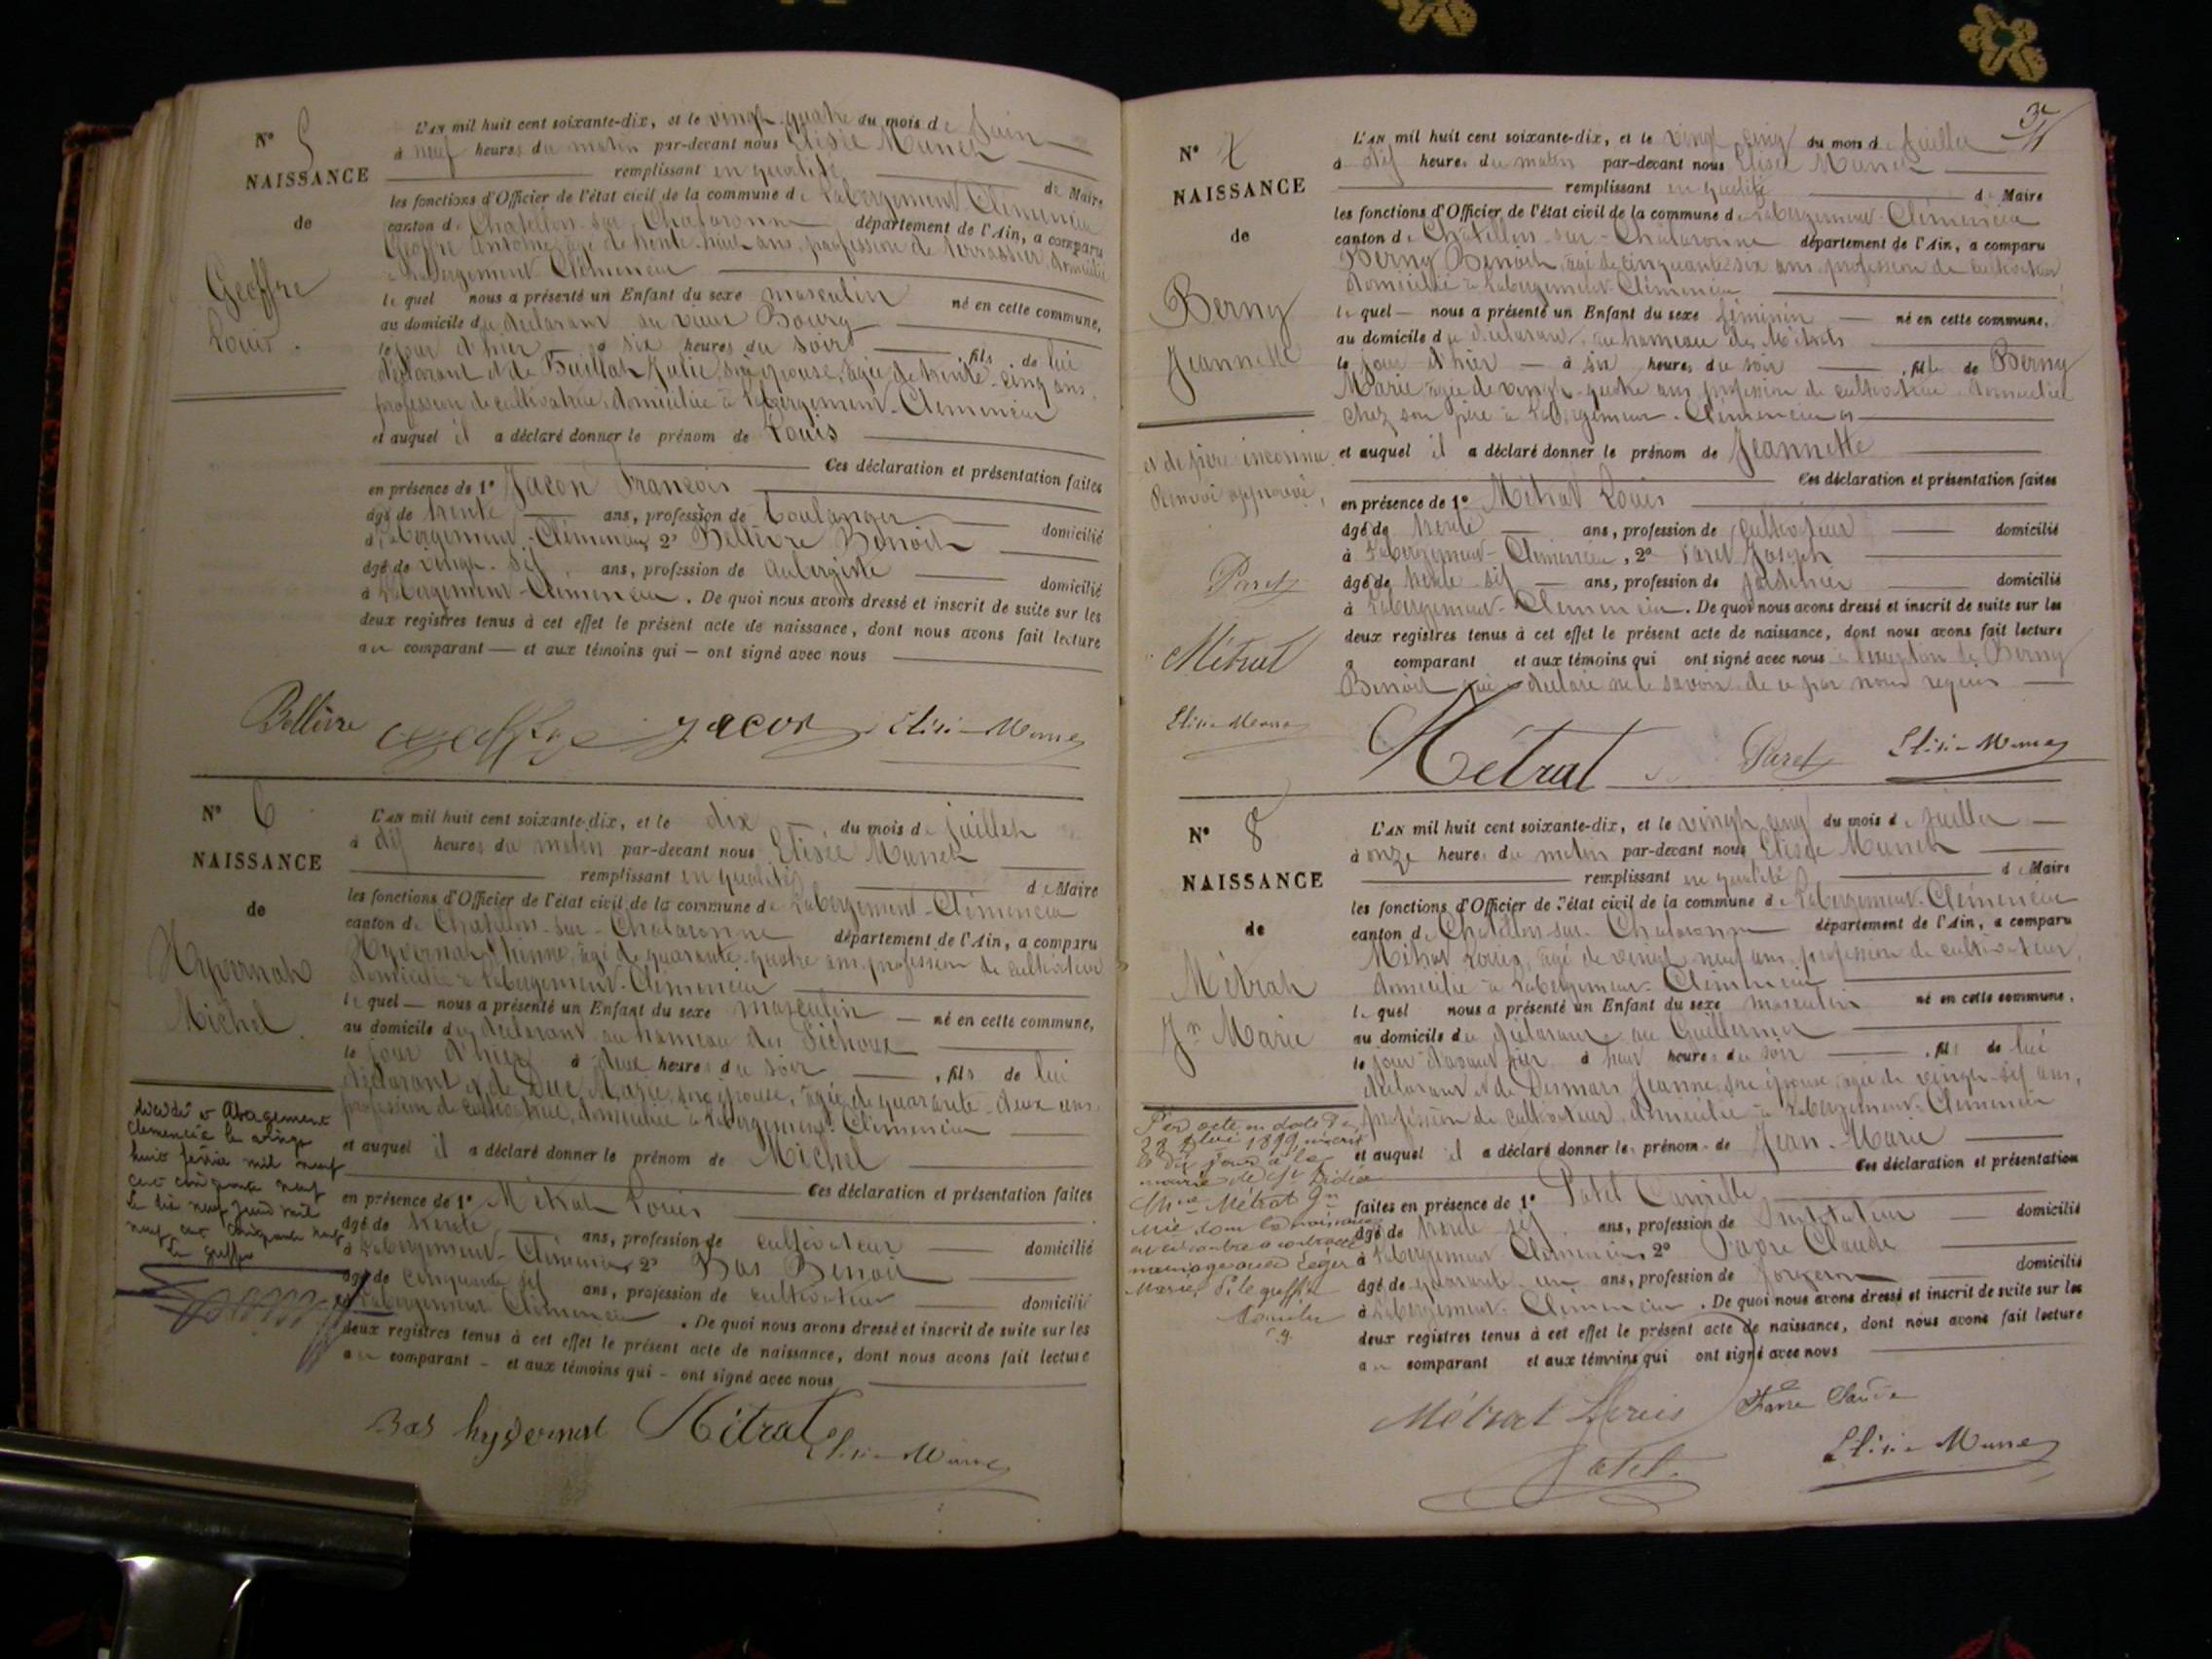 N° 5
NAISSANCE
de
Geoffre
Louis.
L'AN mil huit cent soixante-dix, et le vingt-quatre du mois de Juin
à neuf heures du matin par-devant nous Elisée Munet
remplissant en qualité de Maire
les fonctions d'Officier de l'état civil de la commune de Labergement-Clémencia
canton de Chatillon-sur-Chalaronne département de l'Ain, a comparu
Geoffre Antoine, âgé de trente-huit ans, profession de terrassier, domicilié
à Labergement-Clémencia
le quel nous a présenté un Enfant du sexe masculin né en cette commune,
au domicile du déclarant au vieux Bourg
le jour d'hier à six heures du soir, fils de lui
déclarant et de Buillat Julie, son épouse, âgée de trente-cinq ans,
profession de cultivatrice, domiciliée à Labergement-Clémencia
et auquel il a déclaré donner le prénom de Louis
Ces déclaration et présentation faites
en présence de 1° Jacon François
âgé de trente ans, profession de boulanger domicilié
à Labergement-Clémencia, 2° Bellèvre Benoit
âgé de vingt-sept, ans, profession de aubergiste domicilié
à Labergement-Clémencia. De quoi nous avons dressé et inscrit de suite sur les
deux registres tenus à cet effet le présent acte de naissance, dont nous avons fait lecture
au comparant — et aux témoins qui — ont signé avec nous
Bellèvre geoffre jacon Elisée Munet
N° 6
NAISSANCE
de
Hyvernat
Michel.
L'AN mil huit cent soixante-dix, et le dix du mois de juillet
à dix heures du matin par-devant nous Elisée Munet
remplissant en qualité de Maire
les fonctions d'Officier de l'état civil de la commune de Labergement-Clémencia
canton de Chatillon-sur-Chalaronne département de l'Ain, a comparu
Hyvernat Etienne, âgé de quarante-quatre ans, profession de cultivateur
domicilié à Labergement-Clémencia
le quel — nous a présenté un Enfant du sexe masculin — né en cette commune,
au domicile du déclarant au hameau des Sichoux
le jour d'hier à deux heures du soir, fils de lui
déclarant et de Duc Marie, son épouse, âgée de quarante-deux ans,
profession de cultivatrice, domiciliée à Labergement-Clémencia
et auquel il a déclaré donner le prénom de Michel
Ces déclaration et présentation faites
en présence de 1° Métrat Louis
âgé de trente ans, profession de cultivateur domicilié
à Labergement-Clémencia, 2° Bas Benoit
âgé de cinquante sept ans, profession de cultivateur domicilié
à Labergement Clémencia. De quoi nous avons dressé et inscrit de suite sur les
deux registres tenus à cet effet le présent acte de naissance, dont nous avons fait lecture
au comparant - et aux témoins qui - ont signé avec nous
décédé à Abergement
Clemencia le vingt
huit février mil neuf
cent cinquante neuf
Le dix neuf Juin mil
neuf cent cinquante neuf
Le greffier
Bas hyvernat Métrat Elisée Munet
37
N° 7
NAISSANCE
de
Berny
Jeannette
L'AN mil huit cent soixante-dix, et le vingt cinq du mois de Juillet
à dix heures du matin par-devant nous Elisée Munet
remplissant en qualité de Maire
les fonctions d'Officier de l'état civil de la commune de Labergement-Clémencia
canton de Chatillon-sur-Chalaronne département de l'Ain, a comparu
Berny Benoit, âgé de cinquante six ans, profession de cultivateur
domicilié à Labergement-Clémencia
le quel — nous a présenté un Enfant du sexe féminin — né en cette commune,
au domicile du déclarant, au hameau des Métrats
le jour d'hier — à six heures du soir, fille de Berny
Marie âgée de vingt-quatre ans, profession de cultivatrice domiciliée
chez son père à Labergement-Clémencia
et de père inconnu
Renvoi approuvé,
et auquel il a déclaré donner le prénom de Jeannette
Ces déclaration et présentation faites
en présence de 1° Métrat Louis
âgé de trente ans, profession de cultivateur domicilié
à Labergement-Clémencia, 2° Paret Joseph
âgé de trente-six ans, profession de jardinier domicilié
à Labergement-Clémencia. De quoi nous avons dressé et inscrit de suite sur les
deux registres tenus à cet effet le présent acte de naissance, dont nous avons fait lecture
a comparant et aux témoins qui ont signé avec nous à l'exception de Berny
Benoit qui a déclaré ne le savoir de ce par nous requis
Paret
Métrat
Elisée Munet
Métrat Paret Elisée Munet
N° 8
NAISSANCE
de
Métrat
Jn Marie
L'AN mil huit cent soixante-dix, et le vingt cinq du mois de Juillet
à onze heures du matin par-devant nous Elisée Munet
remplissant en qualité de Maire
les fonctions d'Officier de l'état civil de la commune de Labergement-Clémencia
canton de Chatillon-sur-Chalaronne département de l'Ain, a comparu
Métrat Louis, âgé de vingt neuf ans, profession de cultivateur,
domicilié à Labergement-Clémencia
le quel nous a présenté un Enfant du sexe masculin né en cette commune,
au domicile du déclarant au Guillermet
le jour d'avant hier à huit heures du soir, fils de lui
déclarant et de Desmars Jeanne, son épouse, âgée de vingt-six ans,
profession de cultivateur, domiciliée à Labergement-Clémencia
et auquel il a déclaré donner le prénom de Jean-Marie
Ces déclaration et présentation
faites en présence de 1° Patel Camille
âgé de trente six ans, profession de Instituteur domicilié
à Labergement Clémencia, 2° Favre Claude
âgé de quarante un ans, profession de forgeron domicilié
à Labergement-Clémencia. De quoi nous avons dressé et inscrit de suite sur les
deux registres tenus à cet effet le présent acte de naissance, dont nous avons fait lecture
au comparant et aux témoins qui ont signé avec nous
Par acte en date du
1899 inscrit
le dit jour à la
mairie de St Didier
Métrat Jn
Mie dont la naissance
est ci-contre a contracté
mariage avec Léger
Marie, P. le greffier
Métrat Louis Favre Claude
Patel. Elisée Munet